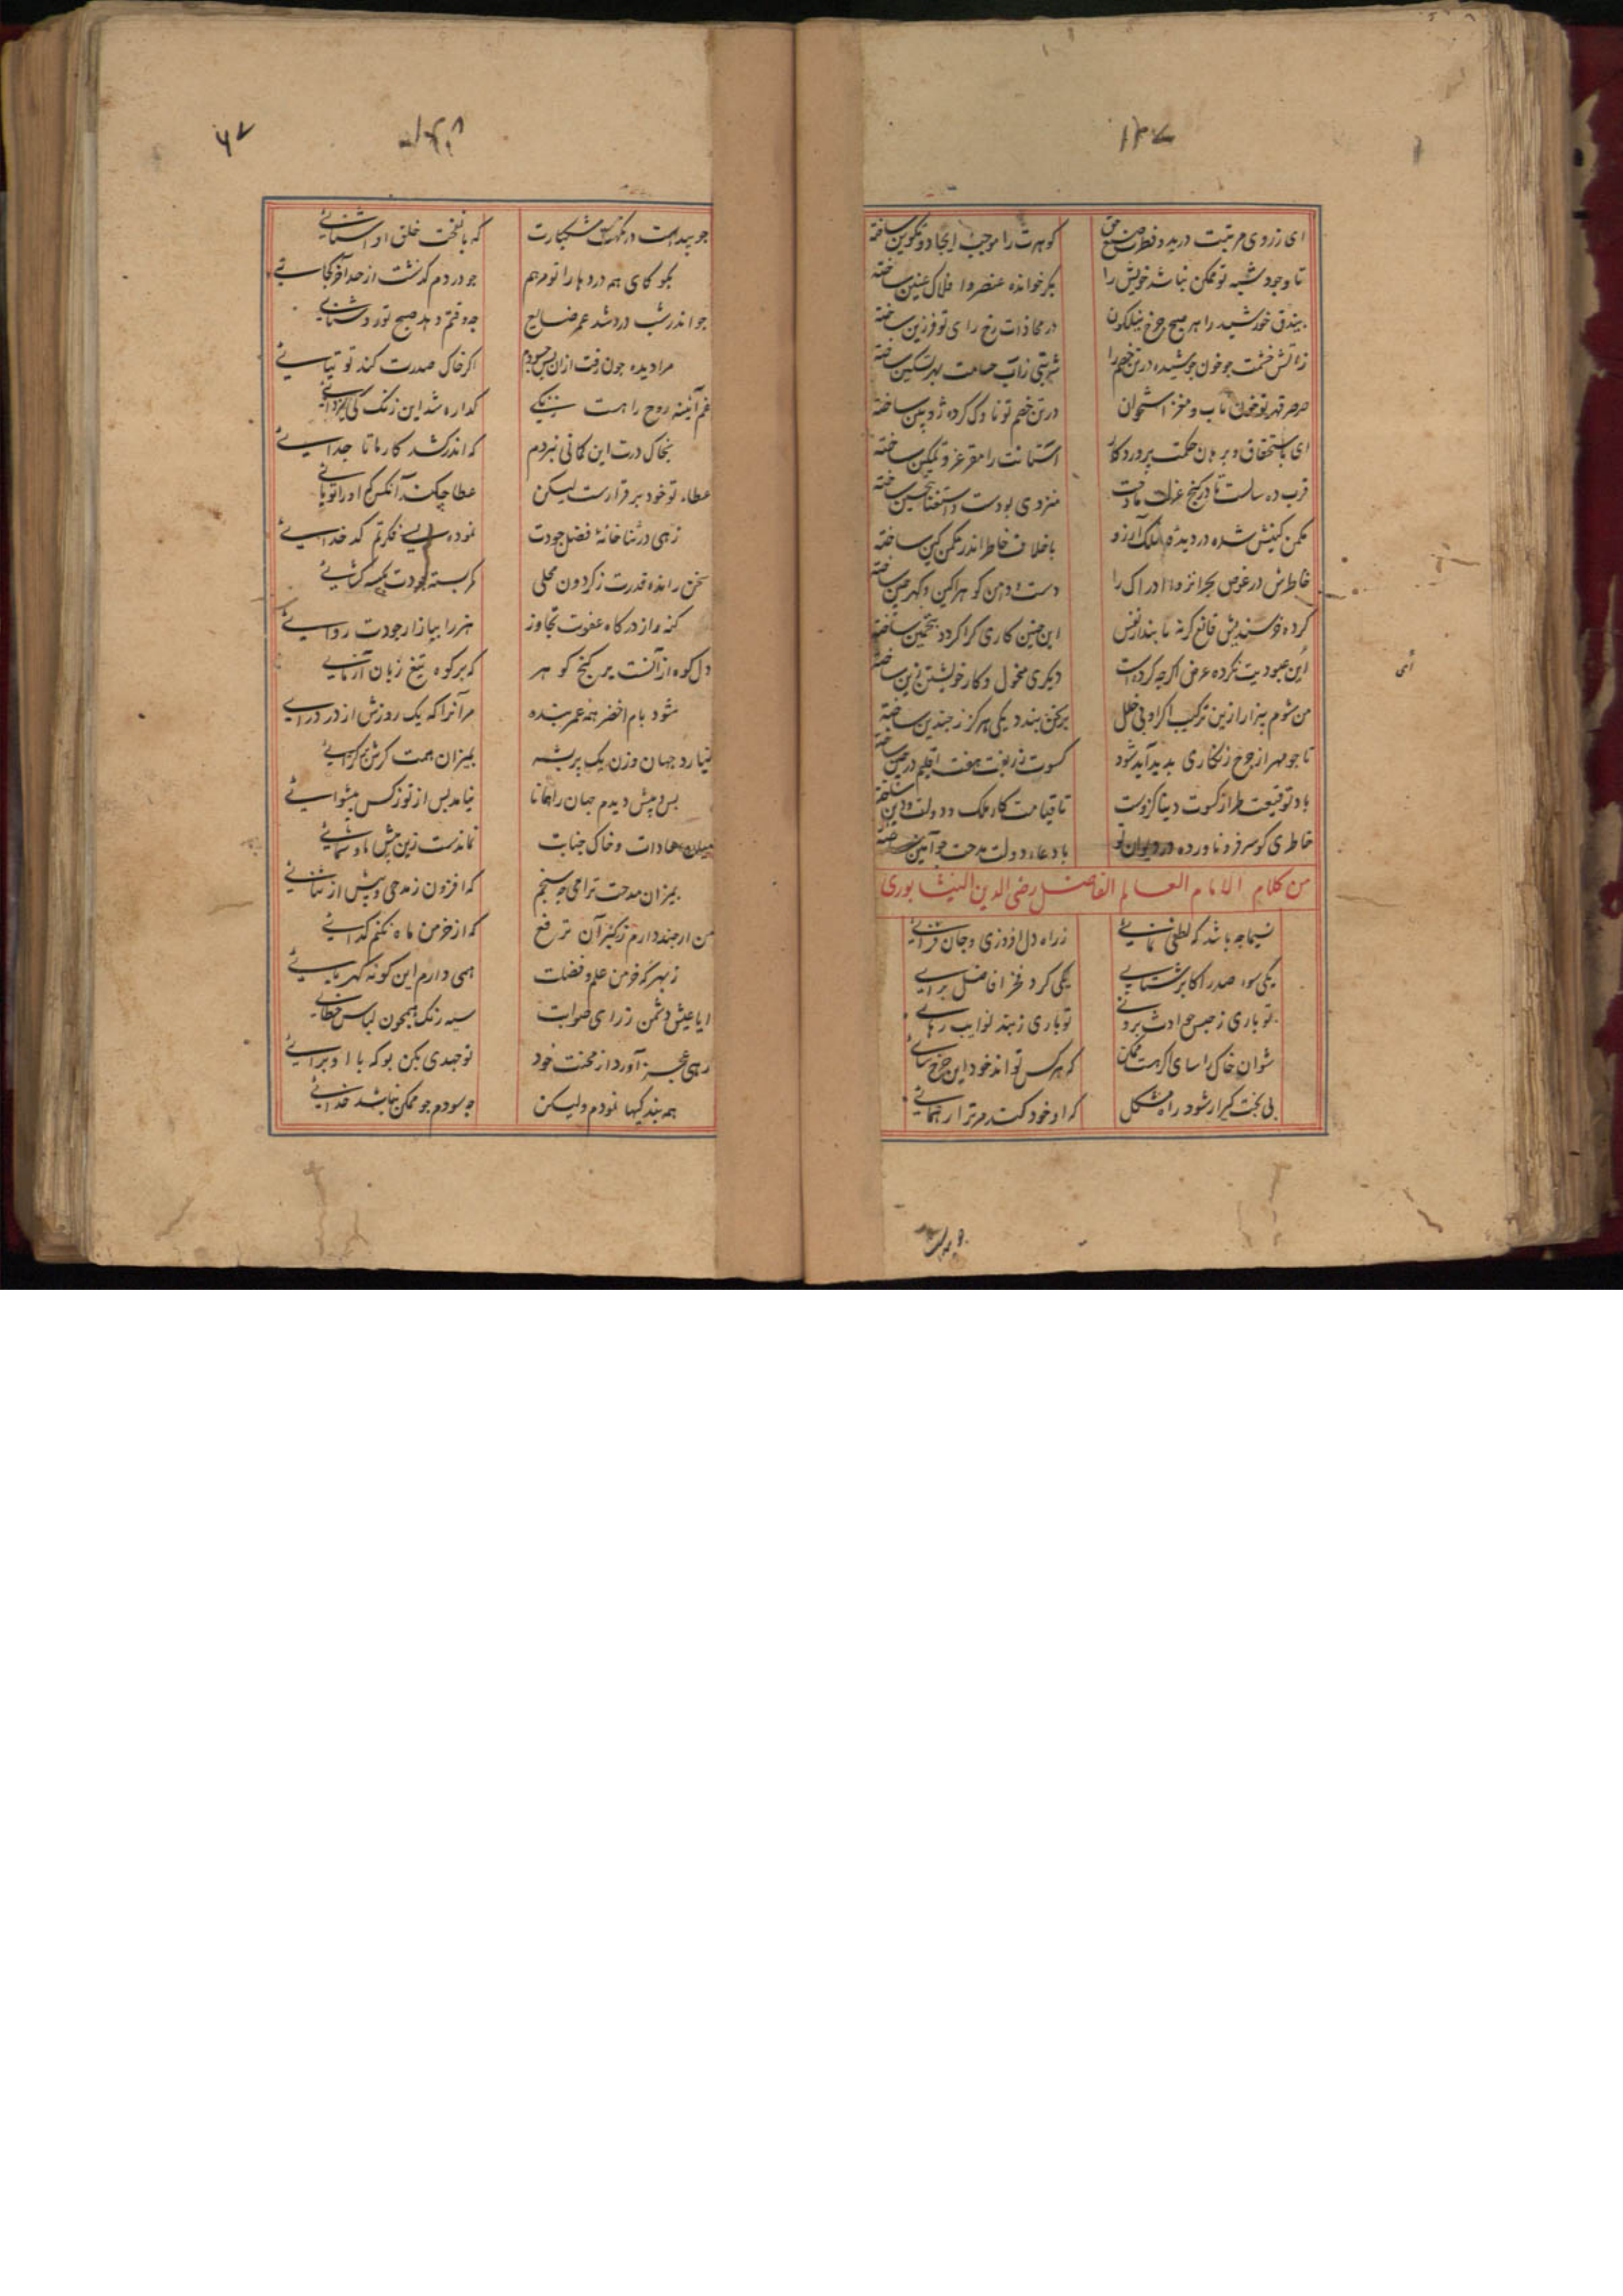 ۱۳۷
ای ز روی مرتبت در بدو فطرت صنع حق گوهرت را موجب ایجاد و تکوین ساخته
تا وجود شبه تو ممکن نباشد خویش را بکر خوانده عنصر و افلاک عنین ساخته
بیدق خورشید را هر صبح چرخ نیلگون در محاذات رخ رای تو فرزین ساخته
زآتش خشمت جو خون جوشیده در تن خصم را شربتی زآب حسامت بهر تسکین ساخته
صرصر قهر تو خون ناب و مغز استخوان در تن خصم تو ناوک کرده ژوپین ساخته
ای باستحقاق و برهان حکمت پروردکار آستانت را مقر عز و تمکین ساخته
قرب ده سالست تا در کنج عزلت مادحت منزوی بودست و استغنا
خاطرش در غوص بحر ادراک را
کرده خرسندیش قانع کرنه تا بندار نفس این جنین کاری کرا کردد بتخمین ساخته
این عبودیت نکرده عرض اکرجه کرده است دیکری مخدول و کار خویشتن زین ساخته
من شوم بیزار ازین ترکیب اکر او بی خلل برکتن بندد یکی هرکز ز جندین ساخته
تا جو مهر از جرخ زنکاری بدید آید شود کسوت زربفت هفت اقلیم در حین ساخته
باد توقیعت طراز کسوت دنیا کزوست تا قیامت کار ملک و دولت و دین ساخته
خاطری کو سر فرو ناورده در دیوان تو باد دعاء دولت مدحت جو آمین ساخته
من کلام الامام العالم الفاضل رضی الدین النیشابوری
نسیما جه باشد که لطفی نمائی ز راه دل افروزی و جان فزائی
یکی سوء صدر اکابر شتابی یکی کرد فخر افاضل برائی
تو باری ز حبس حوادث برونی تو باری ز بند نوایب رهائی
بشوان خاک را سای اکر هست ممکن که هر کس تواند خود این جرخ سائی
بی بخت کیر ار شود راه مشکل که او خود کند مر ترا رهنمائی
۶۷
جو بیداست در نکهت مشکبارت که با نفحت خلق او آشنائی
بکو کای همه دردها را تو مرهم جو دردم کذشت از حد آخر کجائی
جو اندر شب درد شد عمر ضایع جه وقتم دهد صبح تو روشنائی
مرا دیده جون رفت ازان بس جه سودم اکر خاک صدرت کند توتیائی
غم آئینه روح را هست زنکی
بخاک درت این کمانی نبردم که اندر کشد کار ما تا جدائی
عطاء تو خود بر قرارست لیکن عطا جکند آنکس کم او را تو بائی
زهی در ثنا خانهٔ فضل جودت نموده بسی فکرتم کدخدائی
سخن رانده قدرت ز کردون محلی کمر بسته جودت بکیسه کشائی
کنه را ز درکاه عفوت تجاوز هنر را ببازار جودت روائی
دل کوه از آنست بر کنج کوهر که بر کوه تیغ زبان آزمائی
شود بام اخضر همه عمر بنده مر آنرا که یک روزش از در درائی
نیارد جهان وزن یک پر پشه بمیزان همت کرش برکرائی
بس و بیش دیدم جهان را همانا نیامد بس از تو ز کس بیشوائی
و خاک جنابت نماندست زین بیش ما و شمائی
بمیزان مدحت ترا می جه سنجم که افزون ز مدحی و بیش از ثنائی
من ارجند دارم ز کبر آن ترفع که از خرمن ماه نکنم کدائی
ز بهر که خرمن علم و فضلت همی دارم این کونه کهربائی
ایا عیش دشمن ز رای صوابت سیه رنک همجون لباس خطائی
رهی عجز آورد از محنت خود تو جهدی بکن بو که با او برائی
همه بندکیها نمودم ولیکن جه سودم جو ممکن نباشد خدائی